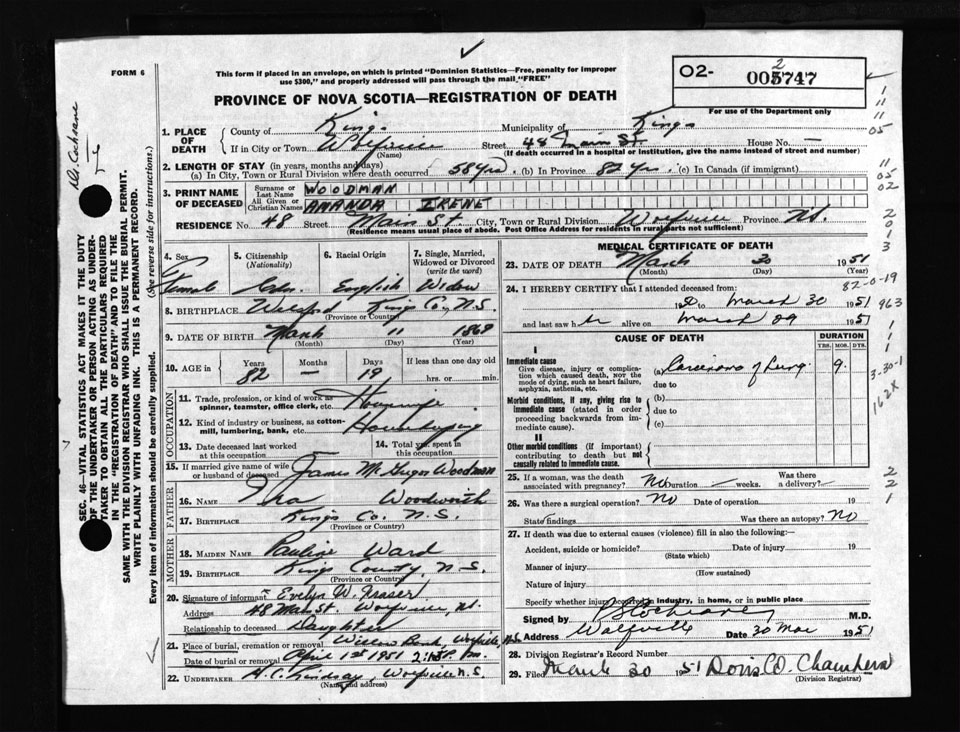 FORM 6
This form if placed in an envelope, on which is printed "Dominion Statistics—Free, penalty for improper
use $300," and properly addressed will pass through the mail "FREE"
02- 2
005747
For use of the Department only
PROVINCE OF NOVA SCOTIA—REGISTRATION OF DEATH
Dr. Cochrane
SEC. 46—VITAL STATISTICS ACT MAKES IT THE DUTY
OF THE UNDERTAKER OR PERSON ACTING AS UNDER-
TAKER TO OBTAIN ALL THE PARTICULARS REQUIRED
IN THE "REGISTRATION OF DEATH" AND TO FILE THE
SAME WITH THE DIVISION REGISTRAR WHO SHALL ISSUE THE BURIAL PERMIT.
WRITE PLAINLY WITH UNFADING INK. THIS IS A PERMANENT RECORD.
Every item of information should be carefully supplied. (See reverse side for instructions.)
1. PLACE OF DEATH
County of Kings Municipality of Kings
If in City or Town Wolfville (Name) Street 48 Main St House No. —
(If death occurred in a hospital or institution, give the name instead of street and number)
2. LENGTH OF STAY (in years, months and days)
(a) In City, Town or Rural Division where death occurred 58 Yrs. (b) In Province 82 Yrs. (c) In Canada (if immigrant)
3. PRINT NAME OF DECEASED
Surname or Last Name WOODMAN
All Given or Christian Names AMANDA IRENET
RESIDENCE No. 48 Street Main St City, Town or Rural Division Wolfville Province N.S.
(Residence means usual place of abode. Post Office Address for residents in rural parts not sufficient)
4. Sex Female
5. Citizenship (Nationality) Cdn.
6. Racial Origin English
7. Single, Married, Widowed or Divorced (write the word) Widow
8. BIRTHPLACE Kings Co., N.S.
(Province or Country)
9. DATE OF BIRTH March 11 1869
(Month) (Day) (Year)
10. AGE in Years 82 Months — Days 19 If less than one day old hrs. or min.
OCCUPATION
11. Trade, profession, or kind of work as spinner, teamster, office clerk, etc. Housewife
12. Kind of industry or business, as cotton-mill, lumbering, bank, etc. Housekeeping
13. Date deceased last worked at this occupation
14. Total yrs. spent in this occupation
15. If married give name of wife or husband of deceased James McGregor Woodman
FATHER
16. NAME Ira Woodworth
17. BIRTHPLACE Kings Co. N.S.
(Province or Country)
MOTHER
18. MAIDEN NAME Pauline Ward
19. BIRTHPLACE Kings County, N.S.
(Province or Country)
20. Signature of informant Evelyn W. Fraser
Address 48 Main St. Wolfville, N.S.
Relationship to deceased Daughter
21. Place of burial, cremation or removal Willow Bank, Wolfville, N.S.
Date of burial or removal April 1st 1951 P.m.
22. UNDERTAKER H.C. Lindsay, Wolfville N.S.
(Name and address)
MEDICAL CERTIFICATE OF DEATH
23. DATE OF DEATH March 30 1951
(Month) (Day) (Year)
24. I HEREBY CERTIFY that I attended deceased from:
to March 30 1951
and last saw her alive on March 1951
CAUSE OF DEATH
DURATION
YRS. MOS. DYS.
I
Immediate cause
Give disease, injury or complica-
tion which caused death, NOT the
mode of dying, such as heart failure,
asphyxia, asthenia, etc.
(a) Carcinoma of Lung 9.
due to
Morbid conditions, if any, giving rise to
immediate cause (stated in order
proceeding backwards from im-
mediate cause).
(b)
due to
(c)
II
Other morbid conditions (if important)
contributing to death but not
causally related to immediate cause.
25. If a woman, was the death associated with pregnancy? No Duration — weeks. Was there a delivery? —
26. Was there a surgical operation? No Date of operation 19
State findings Was there an autopsy? No
27. If death was due to external causes (violence) fill in also the following:—
Accident, suicide or homicide? Date of injury 19
(State which)
Manner of injury
(How sustained)
Nature of injury
Specify whether injury occurred in industry, in home, or in public place
Signed by Cochrane M.D.
Address Wolfville Date 30 Mar 1951
28. Division Registrar's Record Number
29. Filed March 30 1951 Doris D. Chambers
(Division Registrar)
1
11
11
05
11
05
02
2
0
1
3
82-0-19
963
1
1
1
3-30-1
162X
2
2
1